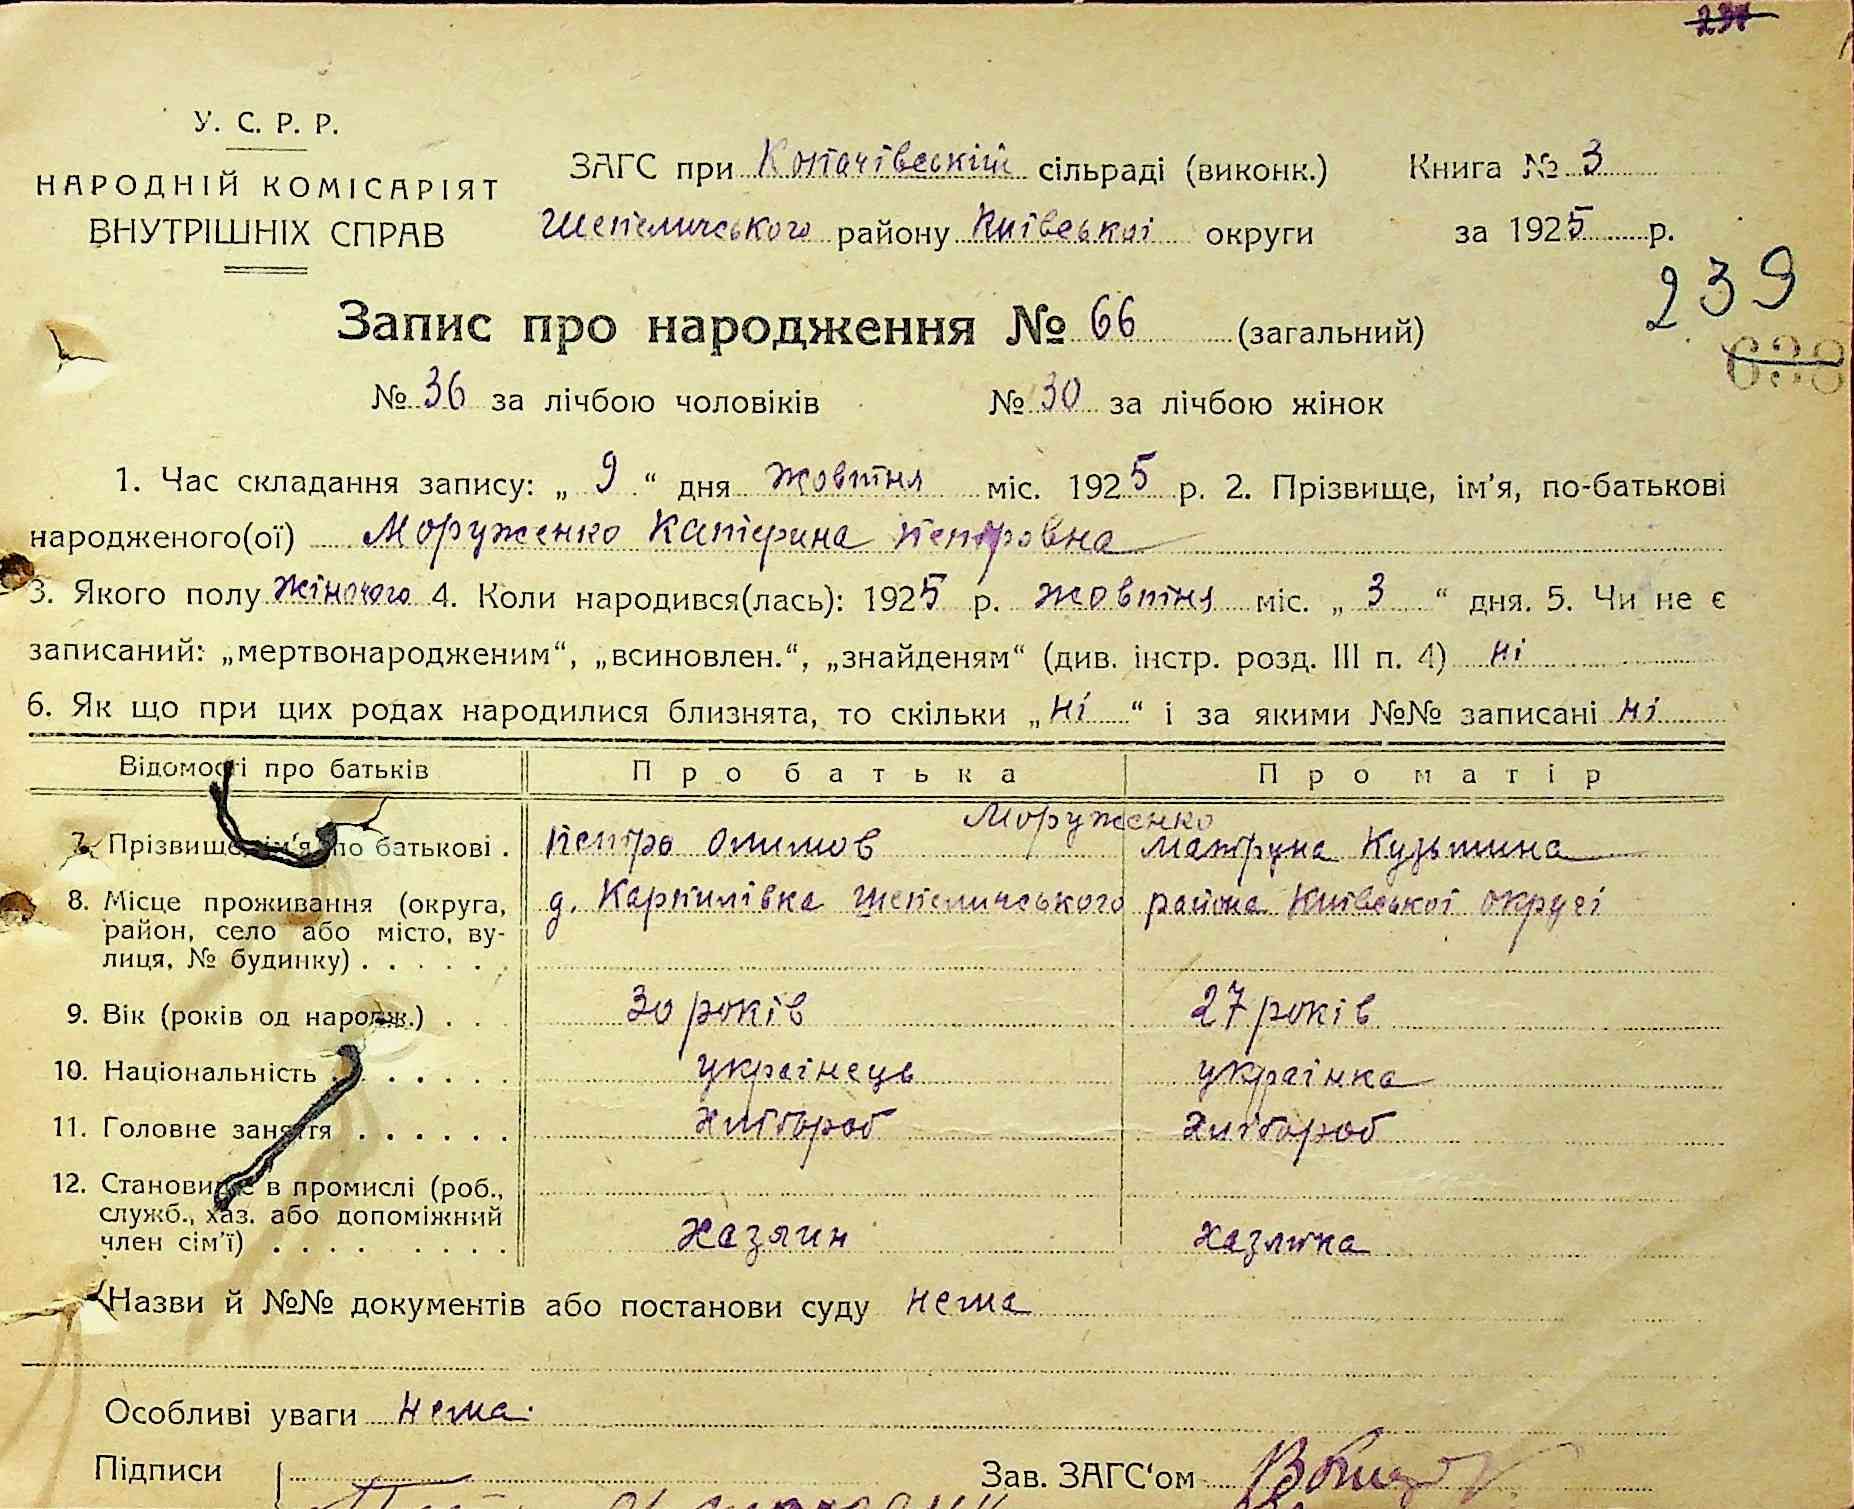 237
У. С. Р. Р.
НАРОДНІЙ КОМІСАРІЯТ
ВНУТРІШНІХ СПРАВ
ЗАГС при Копачівській сільраді (виконк.) Книга № 3
Шепеличського району Київської округи за 1925 р.
239
638
Запис про народження № 66 (загальний)
№ 36 за лічбою чоловіків № 30 за лічбою жінок
1. Час складання запису: „ 9 “ дня жовтня міс. 1925 р. 2. Прізвище, ім'я, по-батькові
народженого(ої) Моруженко Катерина Петровна
3. Якого полу жіночого 4. Коли народився(лась): 1925 р. жовтня міс. „ 3 “ дня. 5. Чи не є
записаний: „мертвонародженим“, „всиновлен.“, „знайденям“ (див. інстр. розд. III п. 4) ні
6. Як що при цих родах народилися близнята, то скільки „ні“ і за якими №№ записані ні
Відомості про батьків Про батька Про матір
Моруженко
7. Прізвище, ім'я, по батькові . Петро Олимов Матруна Кузьмина
8. Місце проживання (округа, д. Карпилівка Шепеличського района Київської округі
район, село або місто, ву-
лиця, № будинку) . . . . . .
9. Вік (років од народж.) . . 30 років 27 років
10. Національність . . . . . . . українець українка
11. Головне заняття . . . . . . хлібороб хлібороб
12. Становище в промислі (роб.,
служб., хаз. або допоміжний
член сім'ї) . . . . . . . . хазяин хазяйка
Назви й №№ документів або постанови суду нема
Особливі уваги нема.
Підписи Зав. ЗАГС‘ом